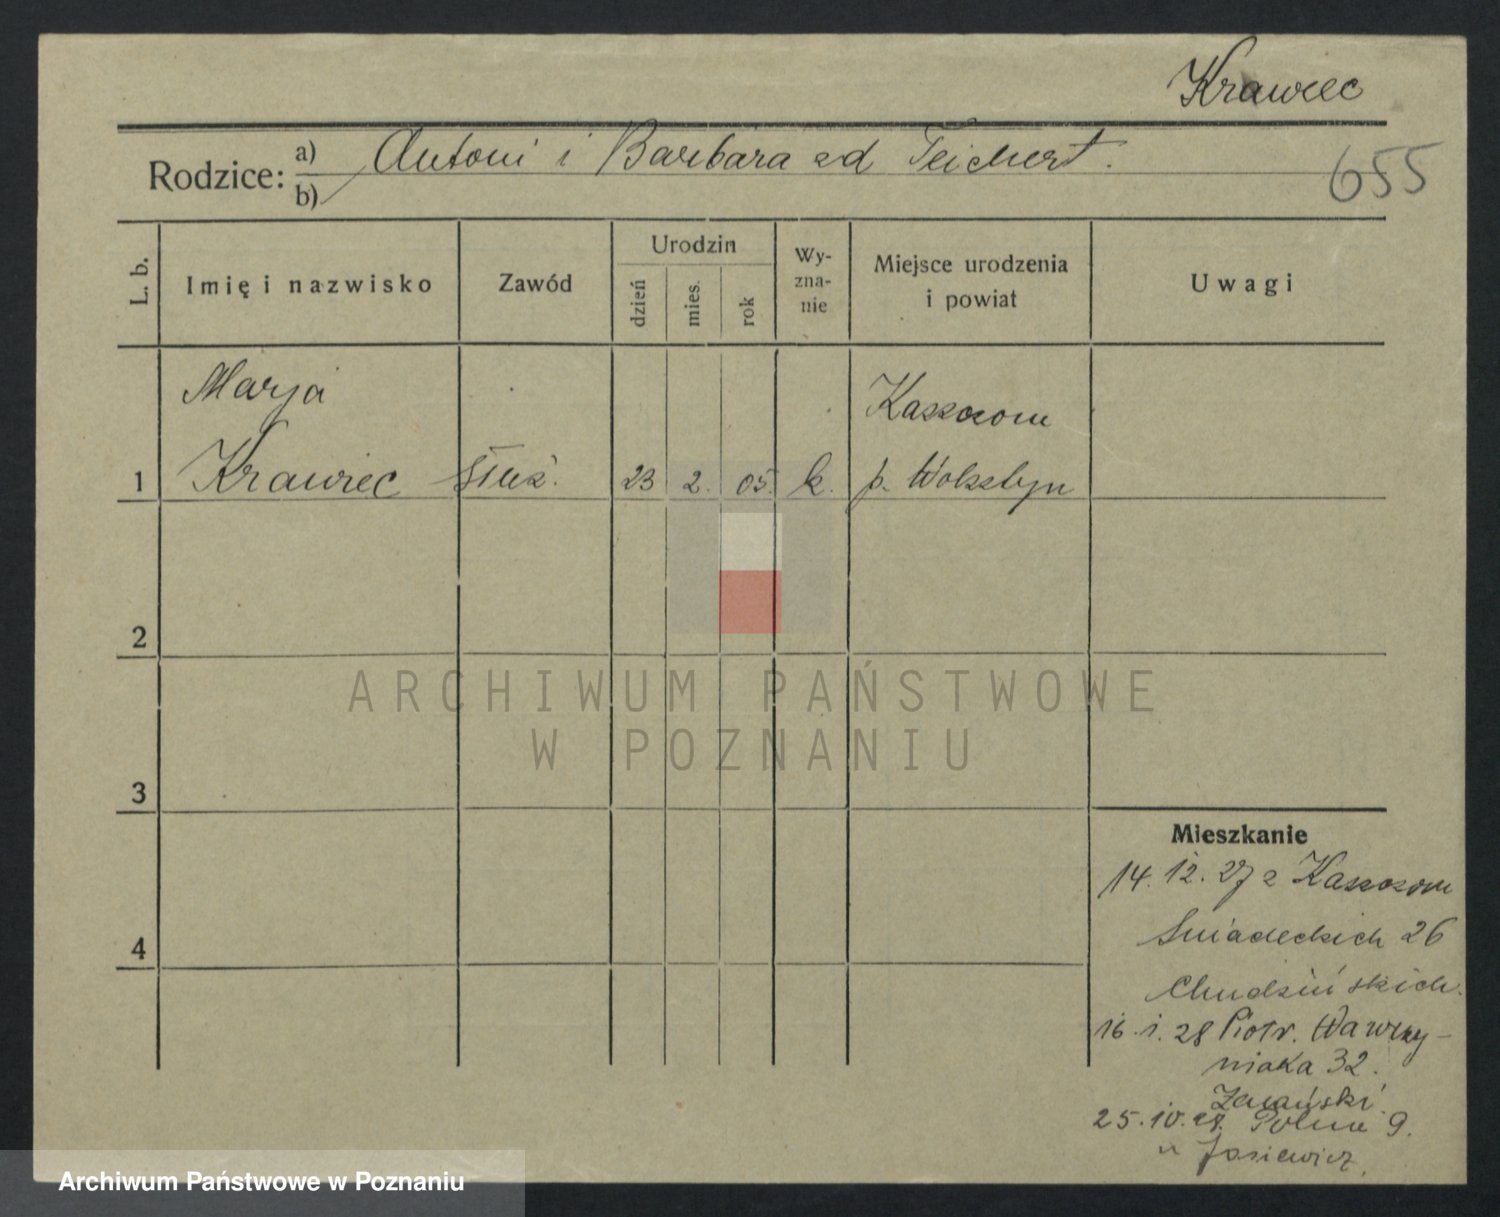 Krawiec
Rodzice: a) Antoni i Barbara zd Teichert.
b)
655
L. b.
Imię i nazwisko
Zawód
Urodzin
dzień
mies.
rok
Wy-
zna-
nie
Miejsce urodzenia
i powiat
Uwagi
Marja
Kaszczom
1 Krawiec służ. 23 2. 05. k. p. Wolsztyn
2
ARCHIWUM PAŃSTWOWE
W POZNANIU
3
Mieszkanie
14. 12. 27 z Kaszczom
4
Śniadeckich 26
Chudzińskich.
16. 1. 28 Piotr. Wawrzy-
niaka 32.
25. 10. 28. Polna 9.
u Jasiewicz.
Archiwum Państwowe w Poznaniu